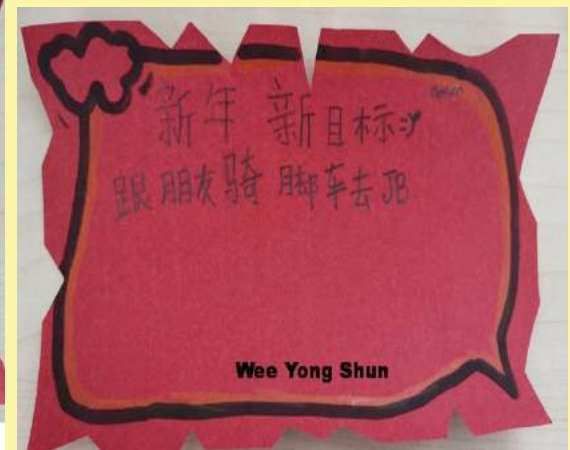 新年 新目标:
跟朋友骑脚车去JB
Wee Yong Shun